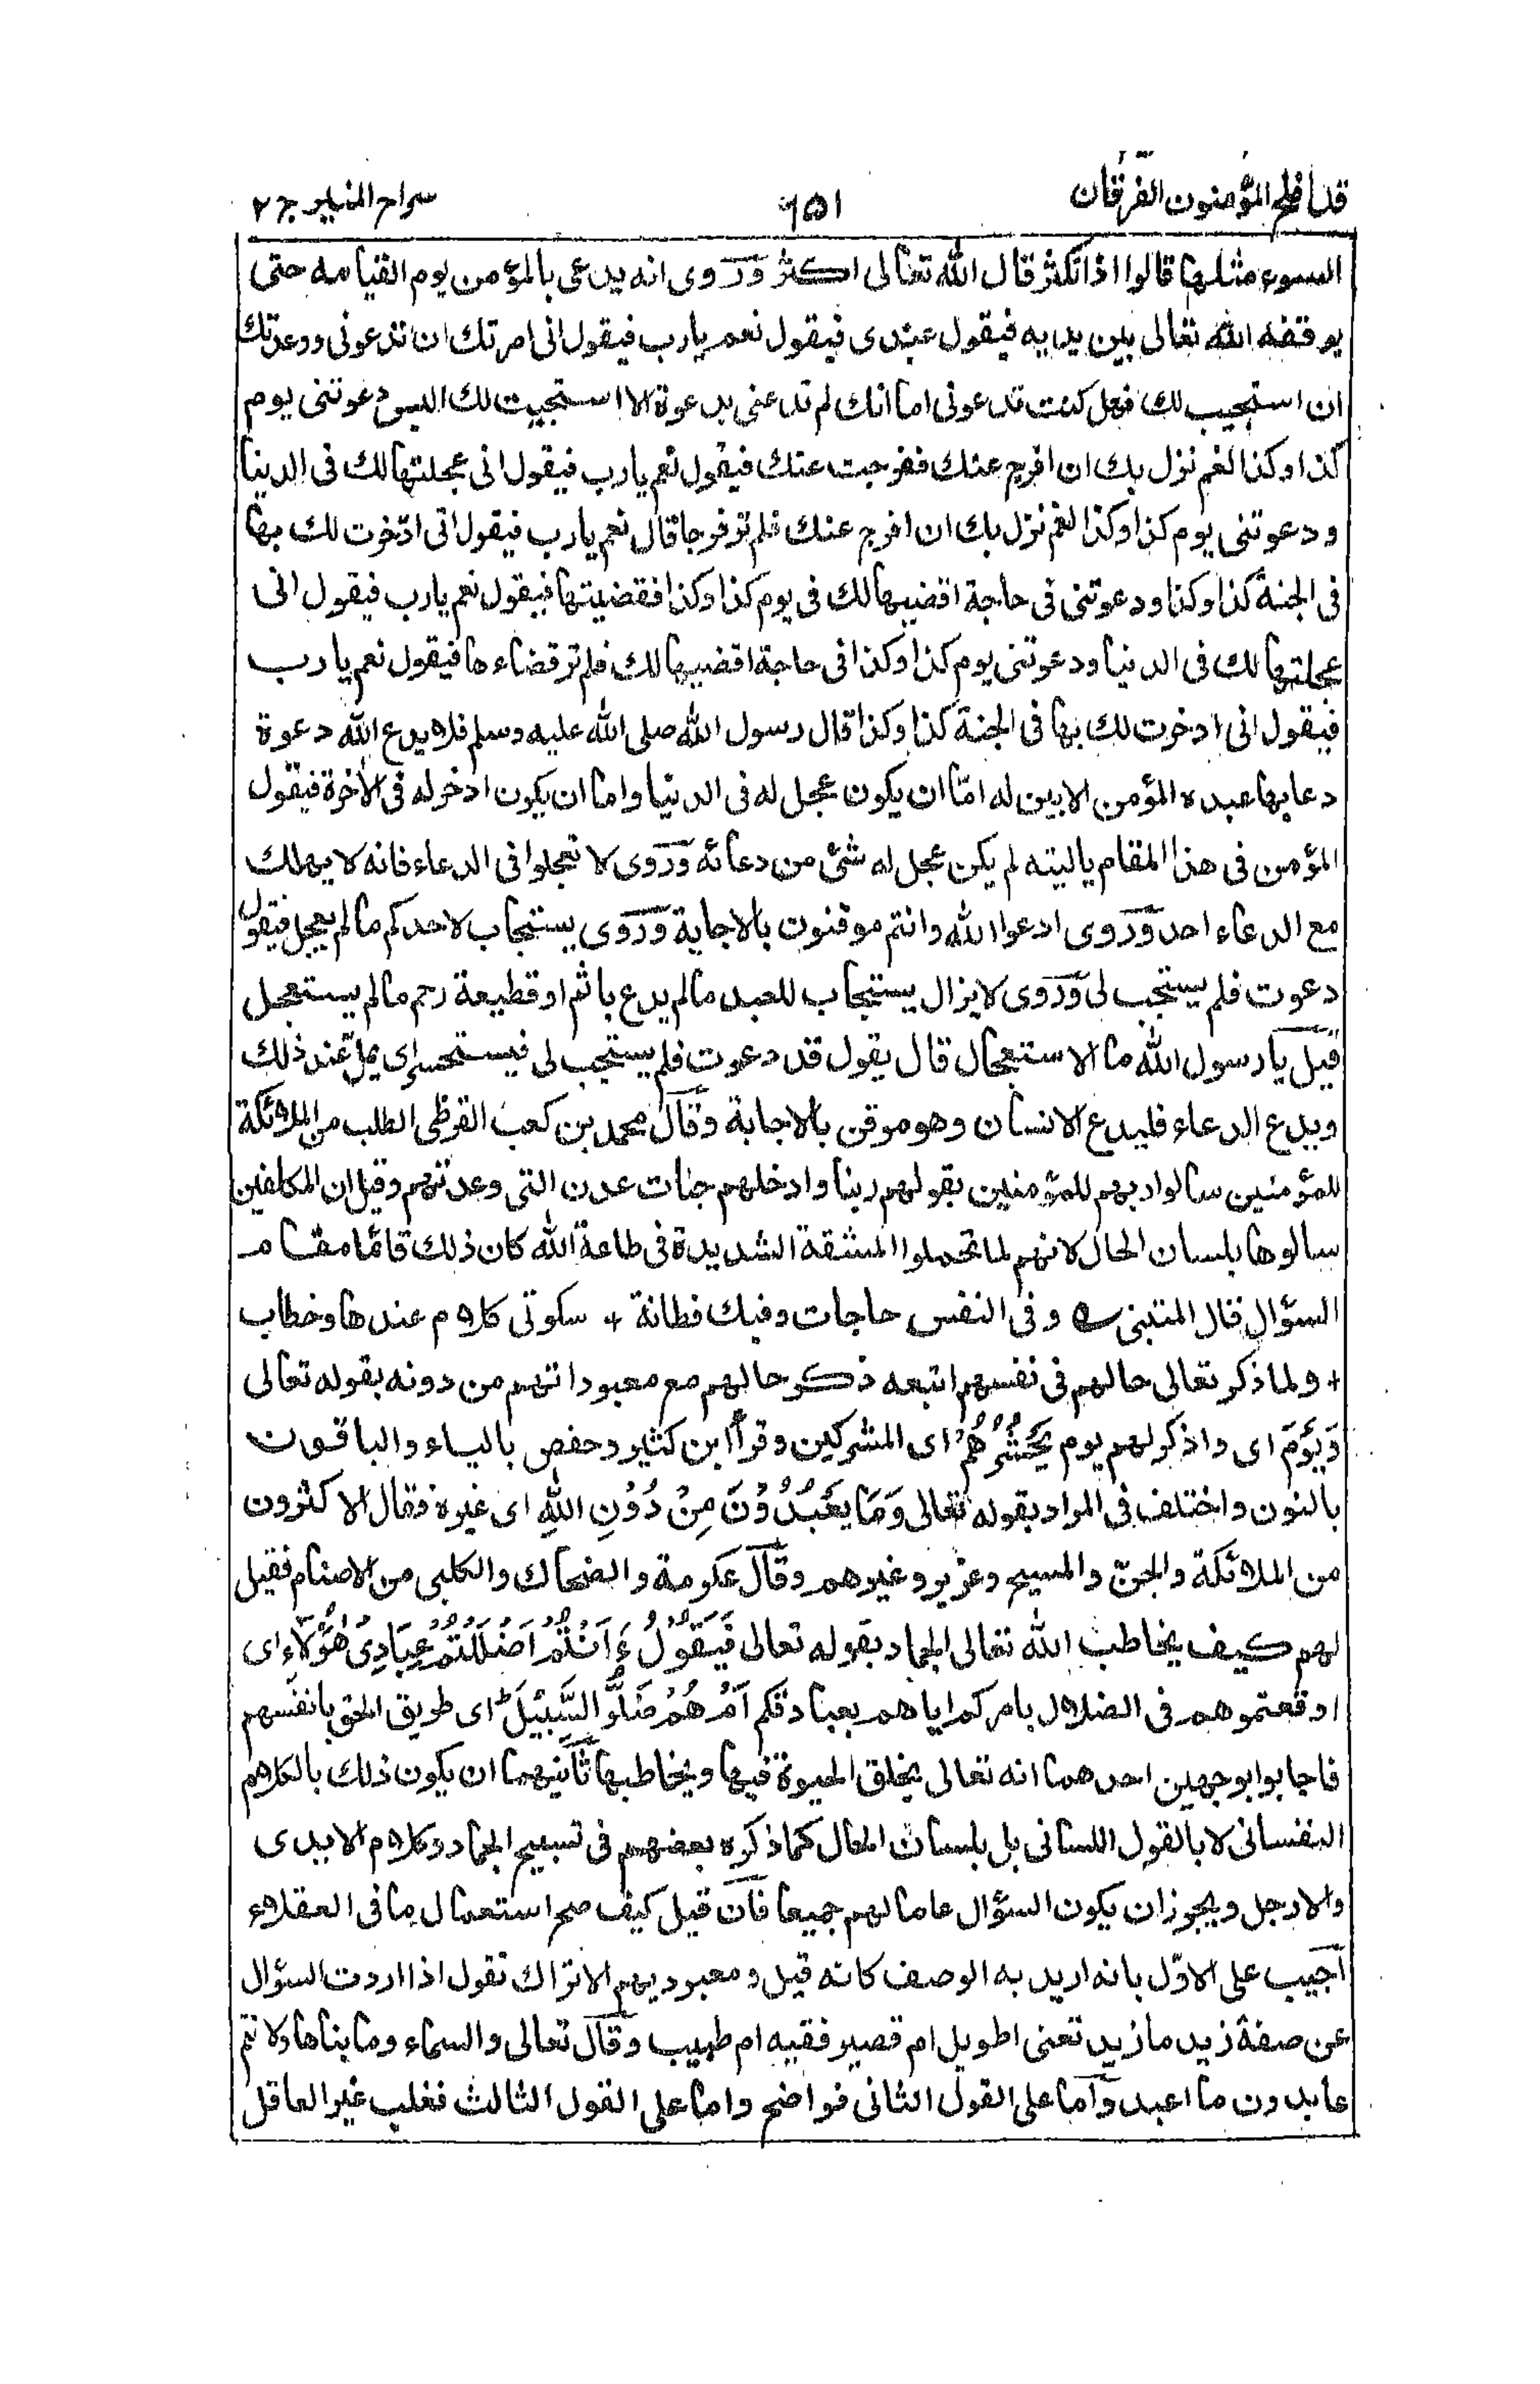 قد افلح المؤمنون الفرقان ٦٥١ سراج المنير ج٢
السوء مثلها قالوا اذا نكثر قال الله تعالى اكثر وروى انه يدعى بالمؤمن يوم القيامه حتى
يوقفه الله تعالى بين يديه فيقول عبدى فيقول نعم يارب فيقول انى امرتك ان تدعونى ووعدتك
ان استجيب لك فهل كنت تدعونى اما انك لم تدعنى بدعوة الا استجبت لك اليس دعوتنى يوم
كذا وكذا لغم نزل بك ان افرج عنك ففرجت عنك فيقول نعم يارب فيقول انى عجلتها لك فى الدنيا
ودعوتنى يوم كذا وكذا لغم نزل بك ان افرج عنك فلم تر فرجا قال نعم يارب فيقول انى ادخرت لك بها
فى الجنة كذا وكذا ودعوتنى فى حاجة اقضيها لك فى يوم كذا وكذا فقضيتها فيقول نعم يارب فيقول انى
عجلتها لك فى الدنيا ودعوتنى يوم كذا وكذا فى حاجة اقضيها لك فلم تر قضاءها فيقول نعم يارب
فيقول انى ادخرت لك بها فى الجنة كذا وكذا قال رسول الله صلى الله عليه وسلم فلا يدع الله دعوة
دعا بها عبده المؤمن الا بين له امّا ان يكون عجل له فى الدنيا واما ان يكون ادخر له فى الآخرة فيقول
المؤمن فى هذا المقام ياليته لم يكن عجل له شئ من دعائه وروى لا تعجلوا فى الدعاء فانه لا يهلك
مع الدعاء احد وروى ادعوا الله وانتم موقنون بالاجابة وروى يستجاب لاحدكم مالم يعجل فيقول
دعوت فلم يستجب لى وروى لا يزال يستجاب للعبد مالم يدع باثم او قطيعة رحم مالم يستعجل
قيل يا رسول الله ما الاستعجال قال يقول قد دعوت فلم يستجب لى فيستحسر اى يمل عند ذلك
ويدع الدعاء فليدع الانسان وهو موقن بالاجابة وقال محمد بن كعب القرظى الطلب من الملائكة
للمؤمنين سالوا ربهم للمؤمنين بقولهم ربنا وادخلهم جنات عدن التى وعدتهم وقيل ان المكلفين
سالوها بلسان الحال لانهم لما تحملوا المشقة الشديدة فى طاعة الله كان ذلك قائما مقام
السؤال قال المتنبى ؎ وفى النفس حاجات وفيك فطانة + سكوتى كلام عندها وخطاب
+ ولما ذكر تعالى حالهم فى نفسهم اتبعه ذكر حالهم مع معبوداتهم من دونه بقوله تعالى
وَيَوْمَ اى واذكر لهم يوم يَحْشُرُهُمْ اى المشركين وقرأ ابن كثير وحفص بالياء والباقون
بالنون واختلف فى المراد بقوله تعالى وَمَا يَعْبُدُوْنَ مِنْ دُوْنِ اللهِ اى غيره فقال الاكثرون
من الملائكة والجن والمسيح وعزير وغيرهم وقال عكرمة والضحاك والكلبى من الاصنام فقيل
لهم كيف يخاطب الله تعالى الجماد بقوله تعالى فَيَقُوْلُ ءَاَنْتُمْ اَضْلَلْتُمْ عِبَادِىْ هٰٓؤُلَآءِ اى
اوقعتموهم فى الضلال بامركم اياهم بعبادتكم اَمْ هُمْ ضَلُّوا السَّبِيْلَ ط اى طريق الحق بانفسهم
فاجابوا بوجهين احدهما انه تعالى يخلق الحيوة فيها ويخاطبها ثانيهما ان يكون ذلك بالكلام
النفسانى لا بالقول اللسانى بل بلسان الحال كما ذكره بعضهم فى تسبيح الجماد وكلام الايدى
والارجل ويجوز ان يكون السؤال عاما لهم جميعا فان قيل كيف صح استعمال ما فى العقلاء
اجيب على الاوّل بانه اريد به الوصف كانه قيل ومعبوديهم الا تراك تقول اذا اردت السؤال
عن صفة زيد ما زيد تعنى اطويل ام قصير فقيه ام طبيب وقال تعالى والسماء وما بناها ولا انتم
عابدون ما اعبد واما على القول الثانى فواضح واما على القول الثالث فغلب غير العاقل